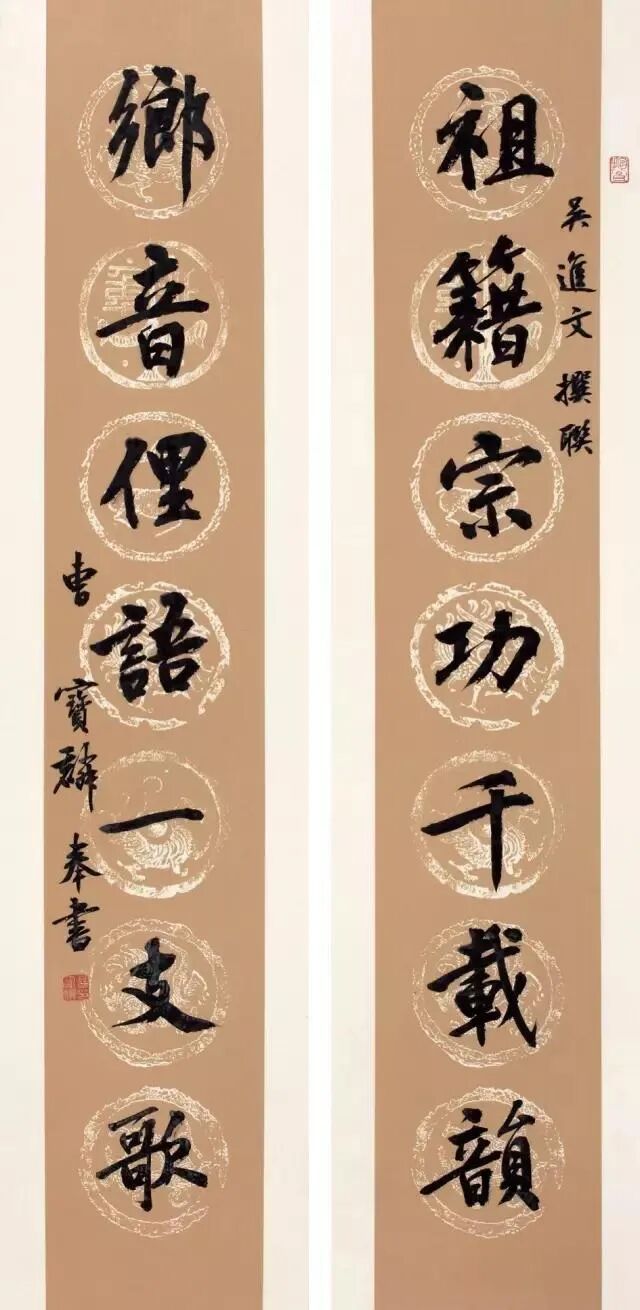 祖籍宗功千載韻
吳進文撰聯
鄉音俚語一支歌
曹寶麟奉書